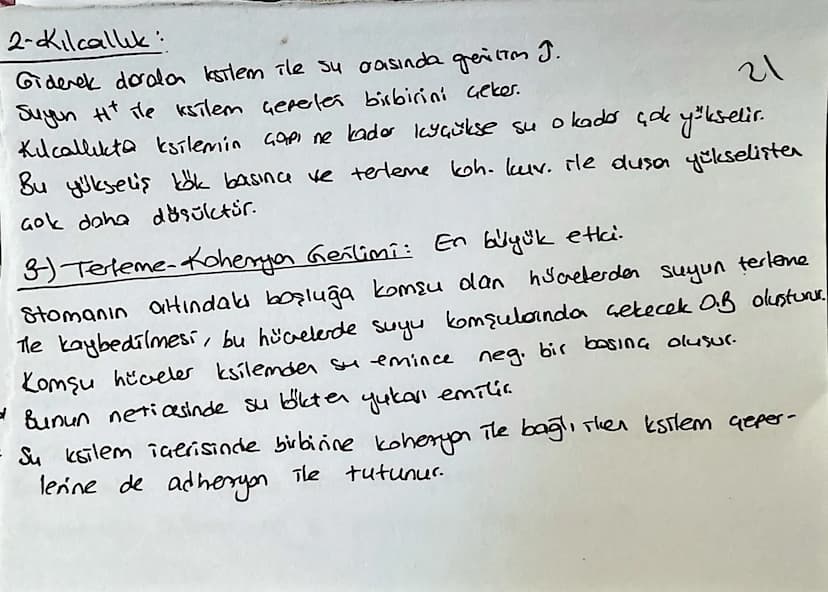 2-Kılcallık:
21
Giderek daralan ksilem ile su arasında gerilim ↑.
Suyun H⁺ ile ksilem çeperleri birbirini çeker.
Kılcallıkta ksilemin çapı ne kadar küçükse su o kadar çok yükselir.
Bu yükseliş kök basıncı ve terleme koh. kuv. ile oluşan yükselişten
çok daha düşüktür.
3-) Terleme-Kohezyon Gerilimi: En büyük etki.
Stomanın altındaki boşluğa komşu olan hücrelerden suyun terleme
ile kaybedilmesi, bu hücrelerde suyu komşularından çekecek OB oluşturur.
Komşu hücreler ksilemden su emince neg. bir basınç oluşur.
Bunun neticesinde su kökten yukarı emilir.
Su ksilem içerisinde birbirine kohezyon ile bağlı iken ksilem çeper-
lerine de adhezyon ile tutunur.